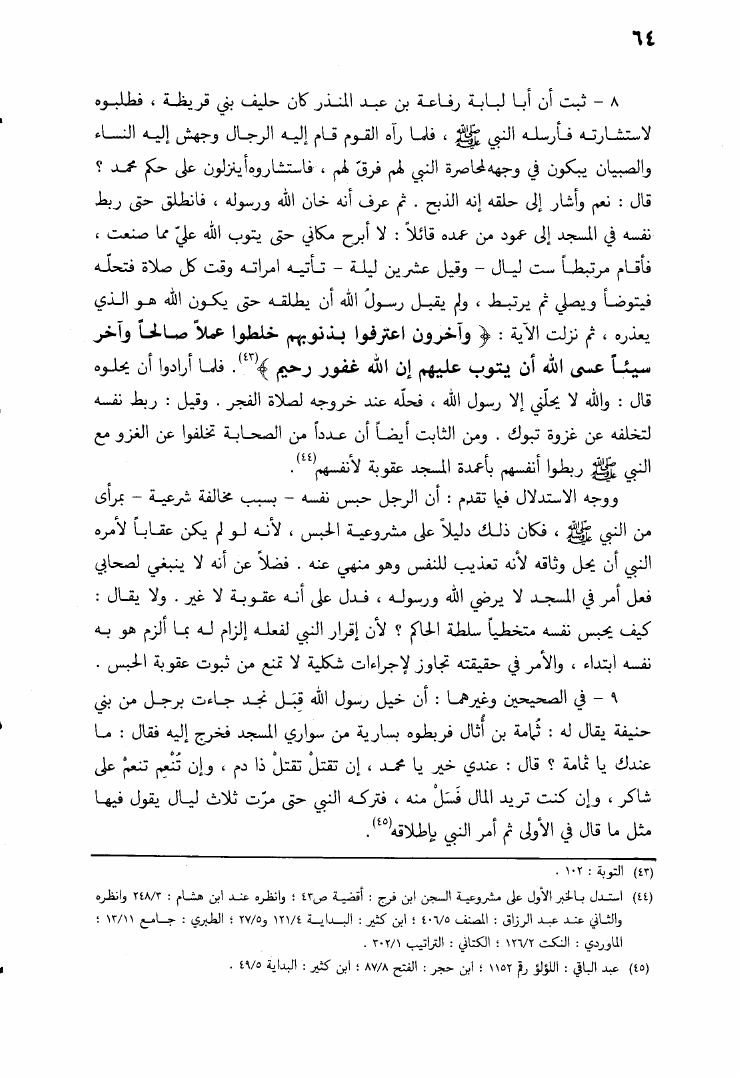 ٦٤
٨ – ثبت أن أبا لبابة رفاعة بن عبد المنذر كان حليف بني قريظة ، فطلبوه
لاستشارته فأرسله النبي ﷺ ، فلما رآه القوم قام إليه الرجال وجهش إليه النساء
والصبيان يبكون في وجهه لمحاصرة النبي لهم فرقّ لهم ، فاستشاروه أينزلون على حكم محمد ؟
قال : نعم وأشار إلى حلقه إنه الذبح . ثم عرف أنه خان الله ورسوله ، فانطلق حتى ربط
نفسه في المسجد إلى عمود من عمده قائلاً : لا أبرح مكاني حتى يتوب الله عليّ مما صنعت ،
فأقام مرتبطاً ست ليال – وقيل عشرين ليلة – تأتيه امراته وقت كل صلاة فتحلّه
فيتوضأ ويصلي ثم يرتبط ، ولم يقبل رسولُ الله أن يطلقه حتى يكون الله هو الذي
يعذره ، ثم نزلت الآية : ﴿ وآخرون اعترفوا بذنوبهم خلطوا عملاً صالحاً وآخر
سيئاً عسى الله أن يتوب عليهم إن الله غفور رحيم ﴾(٤٣). فلما أرادوا أن يحلوه
قال : والله لا يحلّني إلا رسول الله ، فحلّه عند خروجه لصلاة الفجر . وقيل : ربط نفسه
لتخلفه عن غزوة تبوك . ومن الثابت أيضاً أن عدداً من الصحابة تخلفوا عن الغزو مع
النبي ﷺ ربطوا أنفسهم بأعمدة المسجد عقوبة لأنفسهم(٤٤).
ووجه الاستدلال فيما تقدم : أن الرجل حبس نفسه – بسبب مخالفة شرعية – بمرأى
من النبي ﷺ ، فكان ذلك دليلاً على مشروعية الحبس ، لأنه لو لم يكن عقاباً لأمره
النبي أن يحل وثاقه لأنه تعذيب للنفس وهو منهي عنه . فضلاً عن أنه لا ينبغي لصحابي
فعل أمر في المسجد لا يرضي الله ورسوله ، فدل على أنه عقوبة لا غير . ولا يقال :
كيف يحبس نفسه متخطياً سلطة الحاكم ؟ لأن إقرار النبي لفعله إلزام له بما ألزم هو به
نفسه ابتداء ، والأمر في حقيقته تجاوز لإجراءات شكلية لا تمنع من ثبوت عقوبة الحبس .
٩ – في الصحيحين وغيرهما : أن خيل رسول الله قِبَل نجد جاءت برجل من بني
حنيفة يقال له : ثُمامة بن أُثال فربطوه بسارية من سواري المسجد فخرج إليه فقال : ما
عندك يا ثمامة ؟ قال : عندي خير يا محمد ، إن تقتلْ تقتلْ ذا دم ، وإن تُنْعِم تنعمْ على
شاكر ، وإن كنت تريد المال فَسَلْ منه ، فتركه النبي حتى مرّت ثلاث ليال يقول فيها
مثل ما قال في الأولى ثم أمر النبي بإطلاقه(٤٥).
(٤٣) التوبة : ١٠٢ .
(٤٤) استدل بالخبر الأول على مشروعية السجن ابن فرج : أقضية ص٤٣ ؛ وانظره عند ابن هشام : ٢٤٨/٣ وانظره
والثاني عند عبد الرزاق : المصنف ٤٠٦/٥ ؛ ابن كثير : البداية ١٢١/٤ و٢٧/٥ ؛ الطبري : جامع ١٣/١١ ؛
الماوردي : النكت ١٢٦/٢ ؛ الكتاني : التراتيب ٣٠٢/١ .
(٤٥) عبد الباقي : اللؤلؤ رقم ١١٥٢ ؛ ابن حجر : الفتح ٨٧/٨ ؛ ابن كثير : البداية ٤٩/٥ .